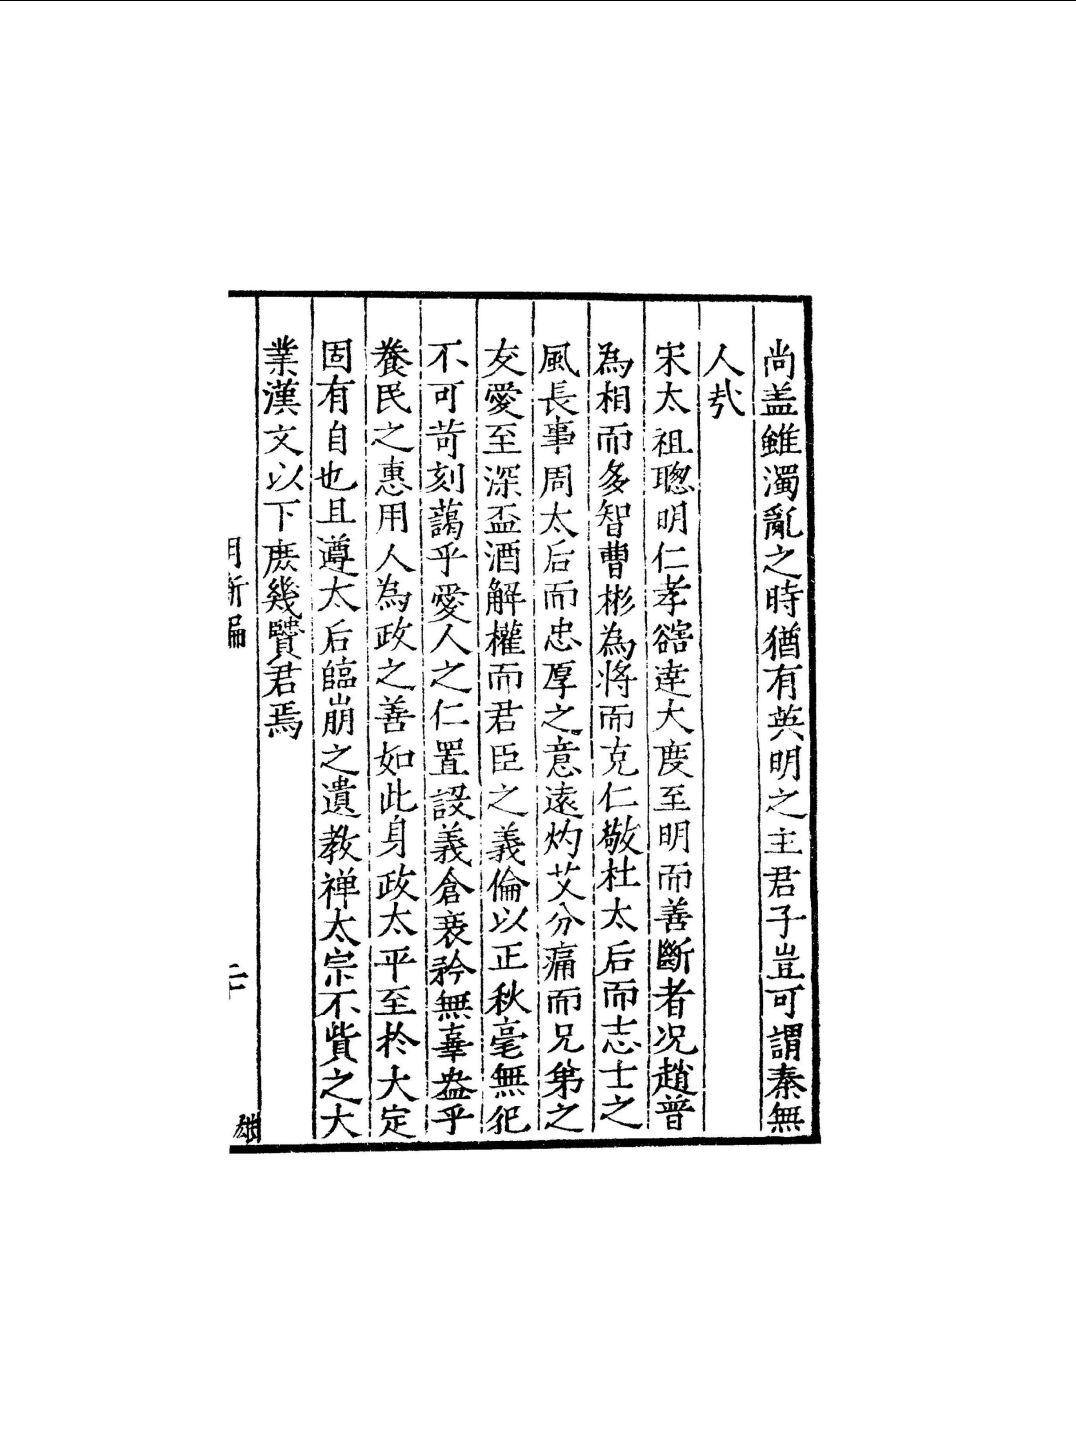 尚盖雖濁亂之時猶有英明之主君子豈可謂秦無
人㢤
宋太祖聰明仁孝豁達大度至明而善斷者况趙普
為相而多智曹彬為將而克仁敬杜太后而志士之
風長事周太后而忠厚之意遠灼艾分痛而兄弟之
友愛至深盃酒解權而君臣之義倫以正秋毫無犯
不可苛刻藹乎愛人之仁置設義倉哀矜無辜盎乎
養民之惠用人為政之善如此身政太平至於大定
固有自也且遵太后臨崩之遺教禅太宗不貲之大
業漢文以下庶幾賢君焉
明斷編
二十